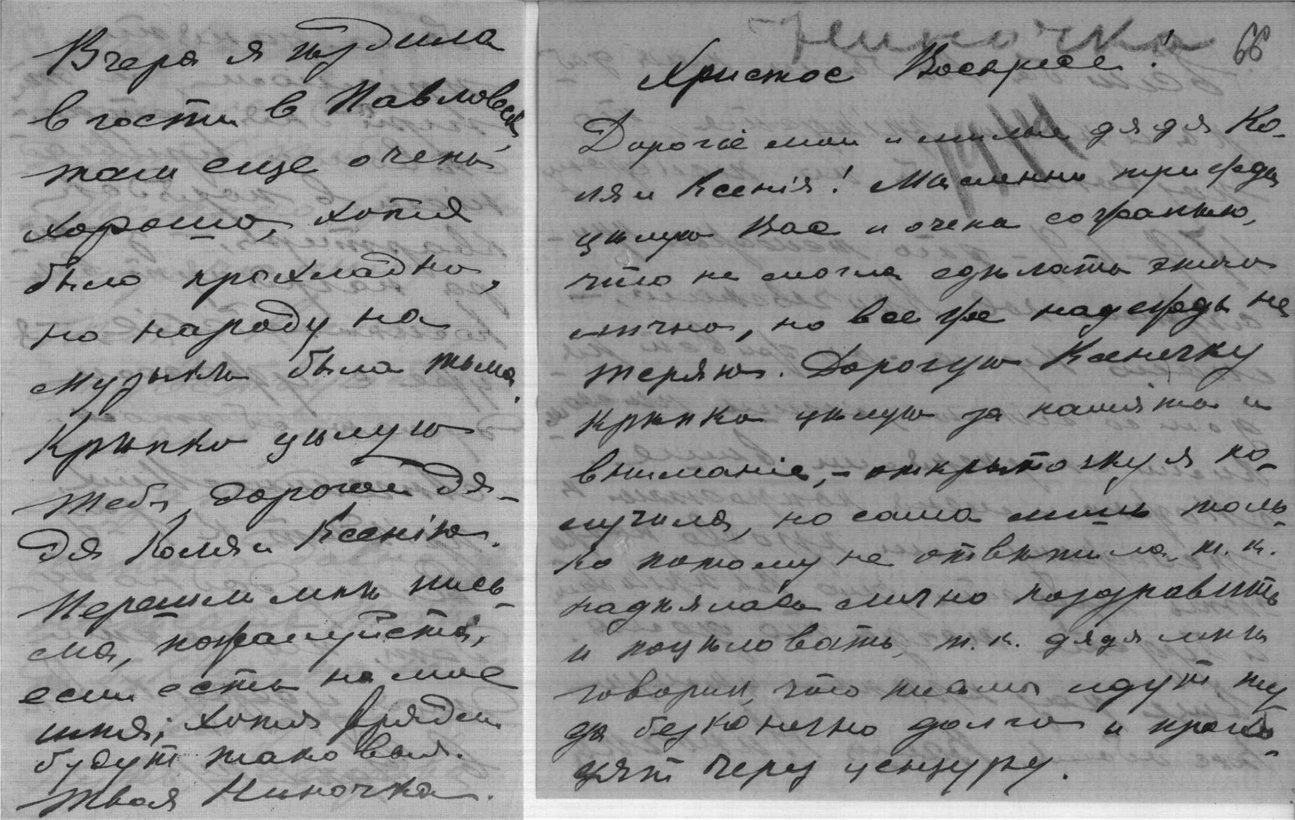 Вчера я ѣздила
в гости в Павловск,
там еще очень
хорошо, хотя
было прохладно,
но народу на
музыкѣ была тьма.
Крѣпко цѣлую
тебя, дорогой дя-
дя Коля и Ксенію.
Перешли мнѣ пись-
ма, пожалуйста,
если есть на мое
имя, хотя врядли
будут таковыя.
Твоя Ниночка.
Ниночка
66
Христос Воскресе!
1914
Дорогіе мои и милые дядя Ко-
ля и Ксенія! Мысленно трижды
цѣлую Вас и очень сожалѣю,
что не могла сдѣлать этого
лично, но все же надежды не
теряю. Дорогую Ксенечку
крѣпко цѣлую за память и
вниманіе, – открыточку я по-
лучила, но сама лишь толь-
ко потому не отвѣтила, т.к.
надѣялась лично поздравить
и поцѣловать, т.к. дядя мнѣ
говорил, что письма идут ту-
да безконечно долго и прохо-
дят через цензуру.